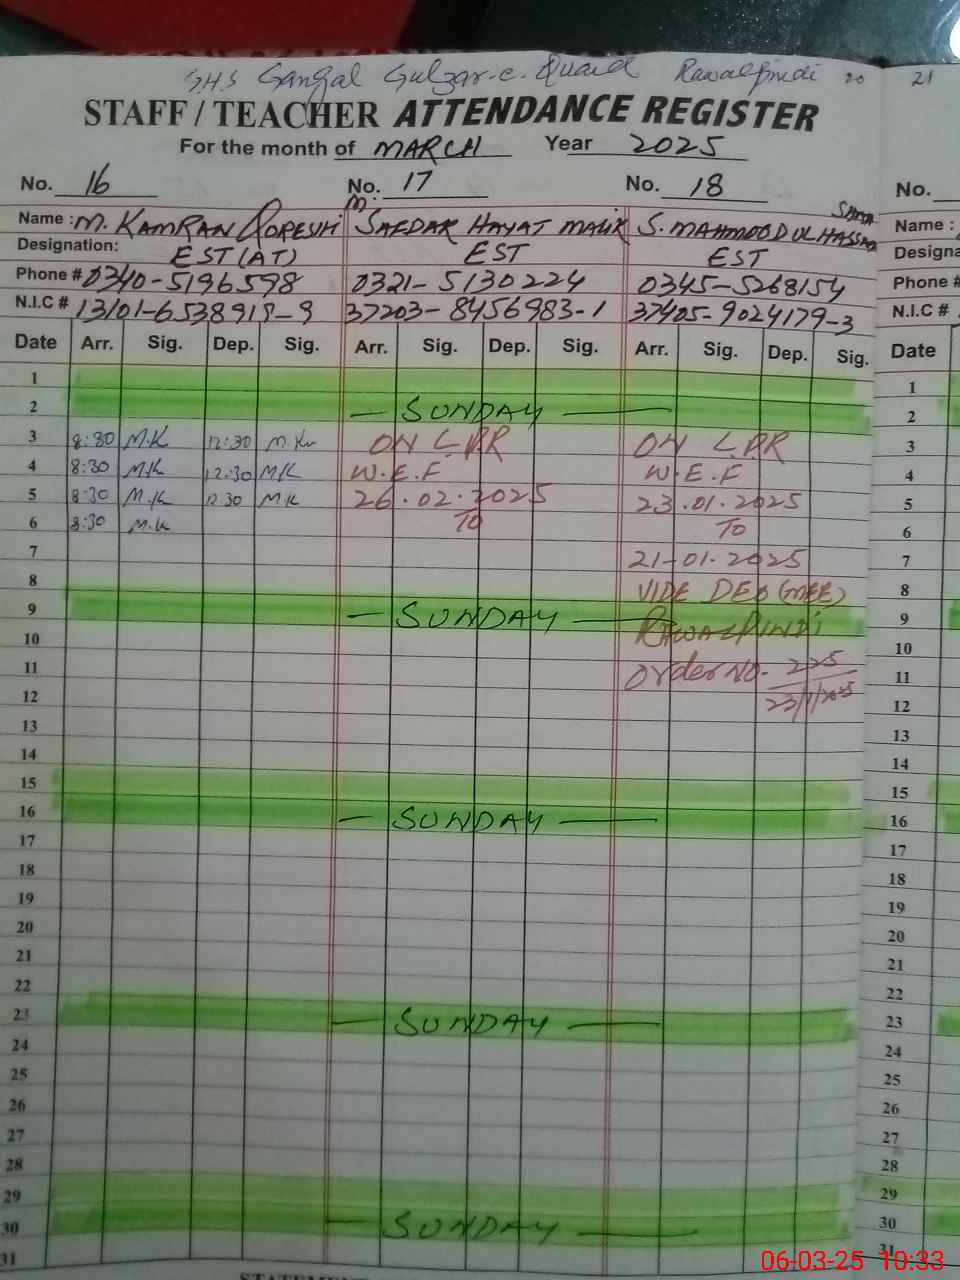 G.H.S Gangal Gulzar-e-Quaid Rawalpindi 20 21
STAFF / TEACHER ATTENDANCE REGISTER
For the month of MARCH Year 2025
No. 16 No. 17 No. 18 No.
Name : M. KAMRAN QORESHI M. SAFDAR HAYAT MALIK S. MAHMOOD UL HASSAN SHAH Name :
Designation: EST (AT) EST EST Designa
Phone # 0340-5196598 0321-5130224 0345-5268154 Phone #
N.I.C # 13101-6538919-9 37203-8456983-1 37405-9024179-3 N.I.C #
Date Arr. Sig. Dep. Sig. Arr. Sig. Dep. Sig. Arr. Sig. Dep. Sig. Date
1 1
2 — SUNDAY — 2
3 8:30 M.K 12:30 M.K ON L.P.R ON L.P.R 3
4 8:30 M.K 12:30 M.K W.E.F W.E.F 4
5 8:30 M.K 12 30 M.K 26.02.2025 23.01.2025 5
6 8:30 M.K TO TO 6
7 21-01-2025 7
8 VIDE DEO (MEE) 8
9 — SUNDAY — RAWALPINDI 9
10 10
11 Order NO. 225 11
12 23/1/2025 12
13 13
14 14
15 15
16 — SUNDAY — 16
17 17
18 18
19 19
20 20
21 21
22 22
23 — SUNDAY — 23
24 24
25 25
26 26
27 27
28 28
29 29
30 — SUNDAY — 30
31 31
06-03-25 10:33